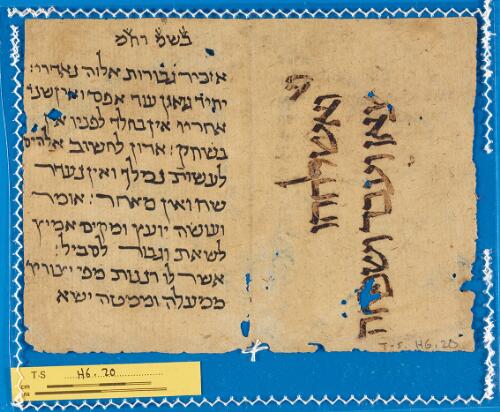 בשמ רחמ
אזכיר גבורות אלוה נאדרי:
יחיד מאין עוד אפס ואין שני
אחריו אין בחלד לפניו א
בשחק: אדון לחשוב אלהים
לעשות נמלך ואין נעדר
שח ואין מאחר: אומר
ועושה יועץ ומקים אמיץ
לשאת וגבור לסביל:
אשר לו רננות מפי יצוריו
ממעלה וממטה ישא
צאן ועבד ושפחה
ואשלחה
T-S. H6.20
T-S H6.20
cm